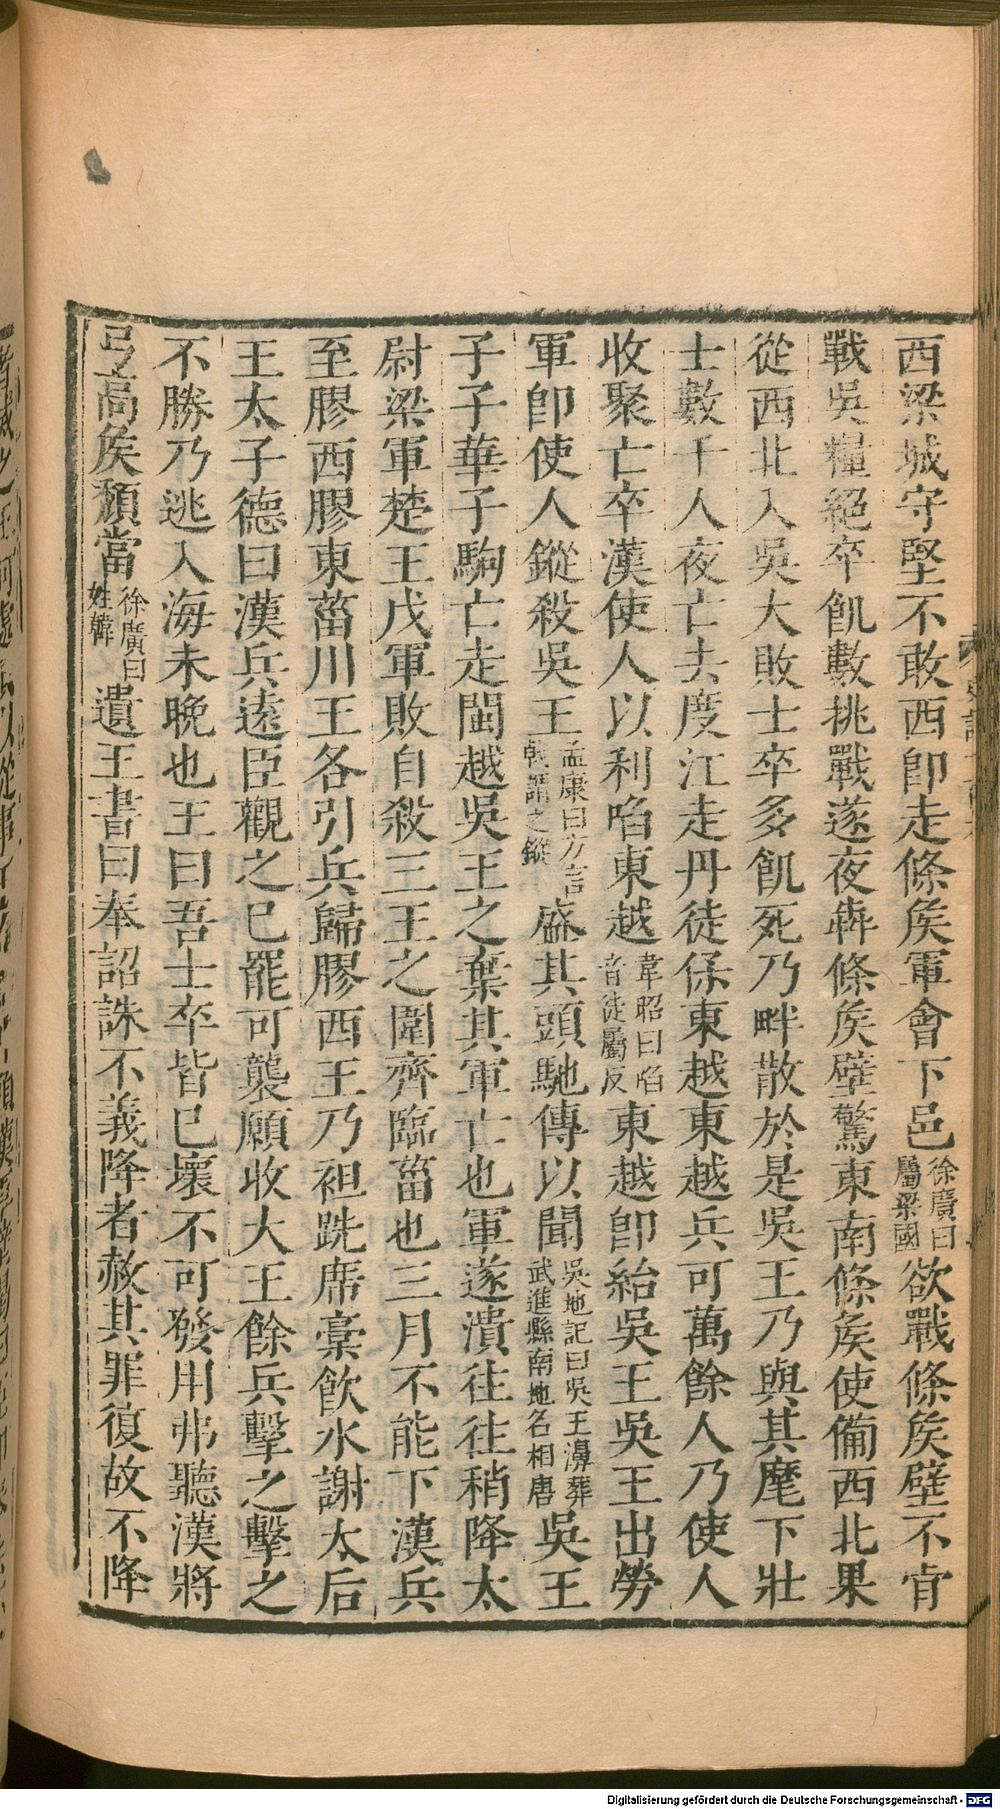 西梁城守堅不敢西卽走條矦軍會下邑徐廣曰屬梁國欲戰條矦壁不肯
戰吳糧絕卒飢數挑戰遂夜犇條矦壁驚東南條矦使備西北果
從西北入吳大敗士卒多飢死乃畔散於是吳王乃與其麾下壯
士數千人夜亡去度江走丹徒保東越東越兵可萬餘人乃使人
收聚亡卒漢使人以利啗東越韋昭曰啗音徒屬反東越卽紿吳王吳王出勞
軍卽使人鏦殺吳王孟康曰方言戟謂之鏦盛其頭馳傳以聞吳地記曰吳王濞葬武進縣南地名相唐吳王
子子華子駒亡走閩越吳王之棄其軍亡也軍遂潰往往稍降太
尉梁軍楚王戊軍敗自殺三王之圍齊臨菑也三月不能下漢兵
至膠西膠東菑川王各引兵歸膠西王乃袒跣席稾飮水謝太后
王太子德曰漢兵遠臣觀之已罷可襲願收大王餘兵擊之擊之
不勝乃逃入海未晚也王曰吾士卒皆已壞不可發用弗聽漢將
弓高矦頹當徐廣曰姓韓遺王書曰奉詔誅不義降者赦其罪復故不降
Digitalisierung gefördert durch die Deutsche Forschungsgemeinschaft - DFG